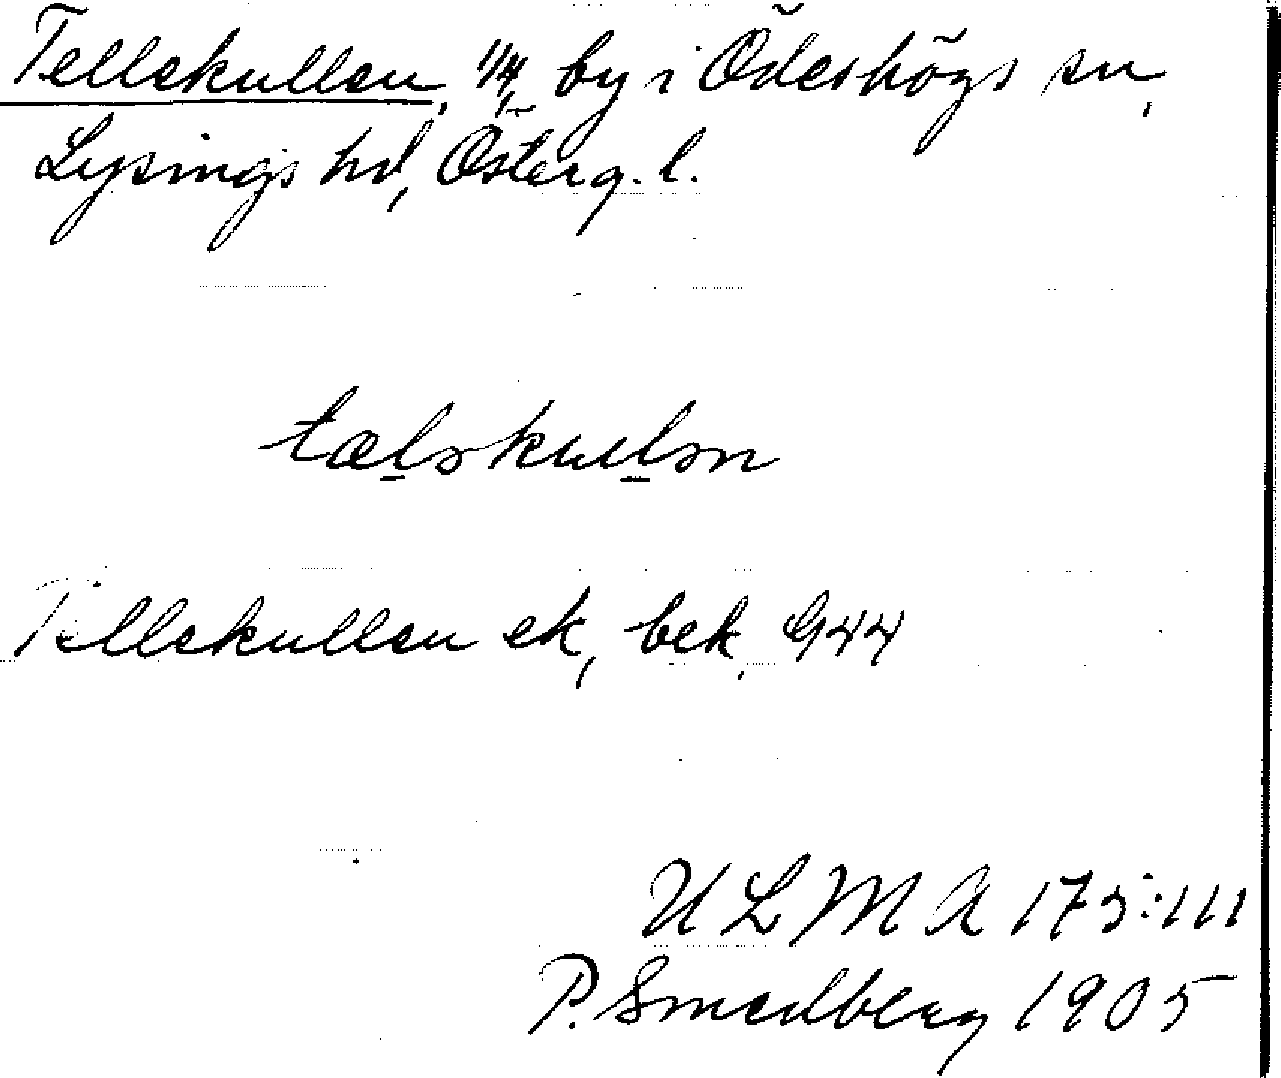 Tellekullen, 1/4, by i Ödeshögs sn,
Lysings hd, Österg. l.
tæləkullən
Tellekullen ek, bek, G44
ULMA 175:111
P. Smedberg 1905